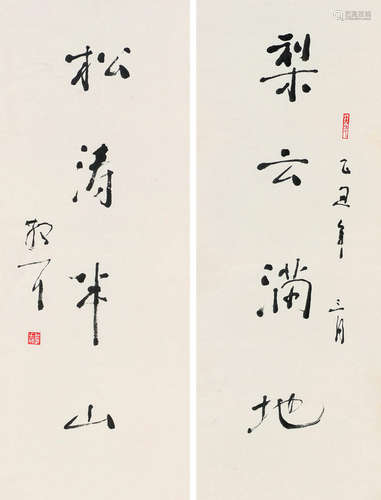 梨云满地
乙丑年 三月
松涛半山